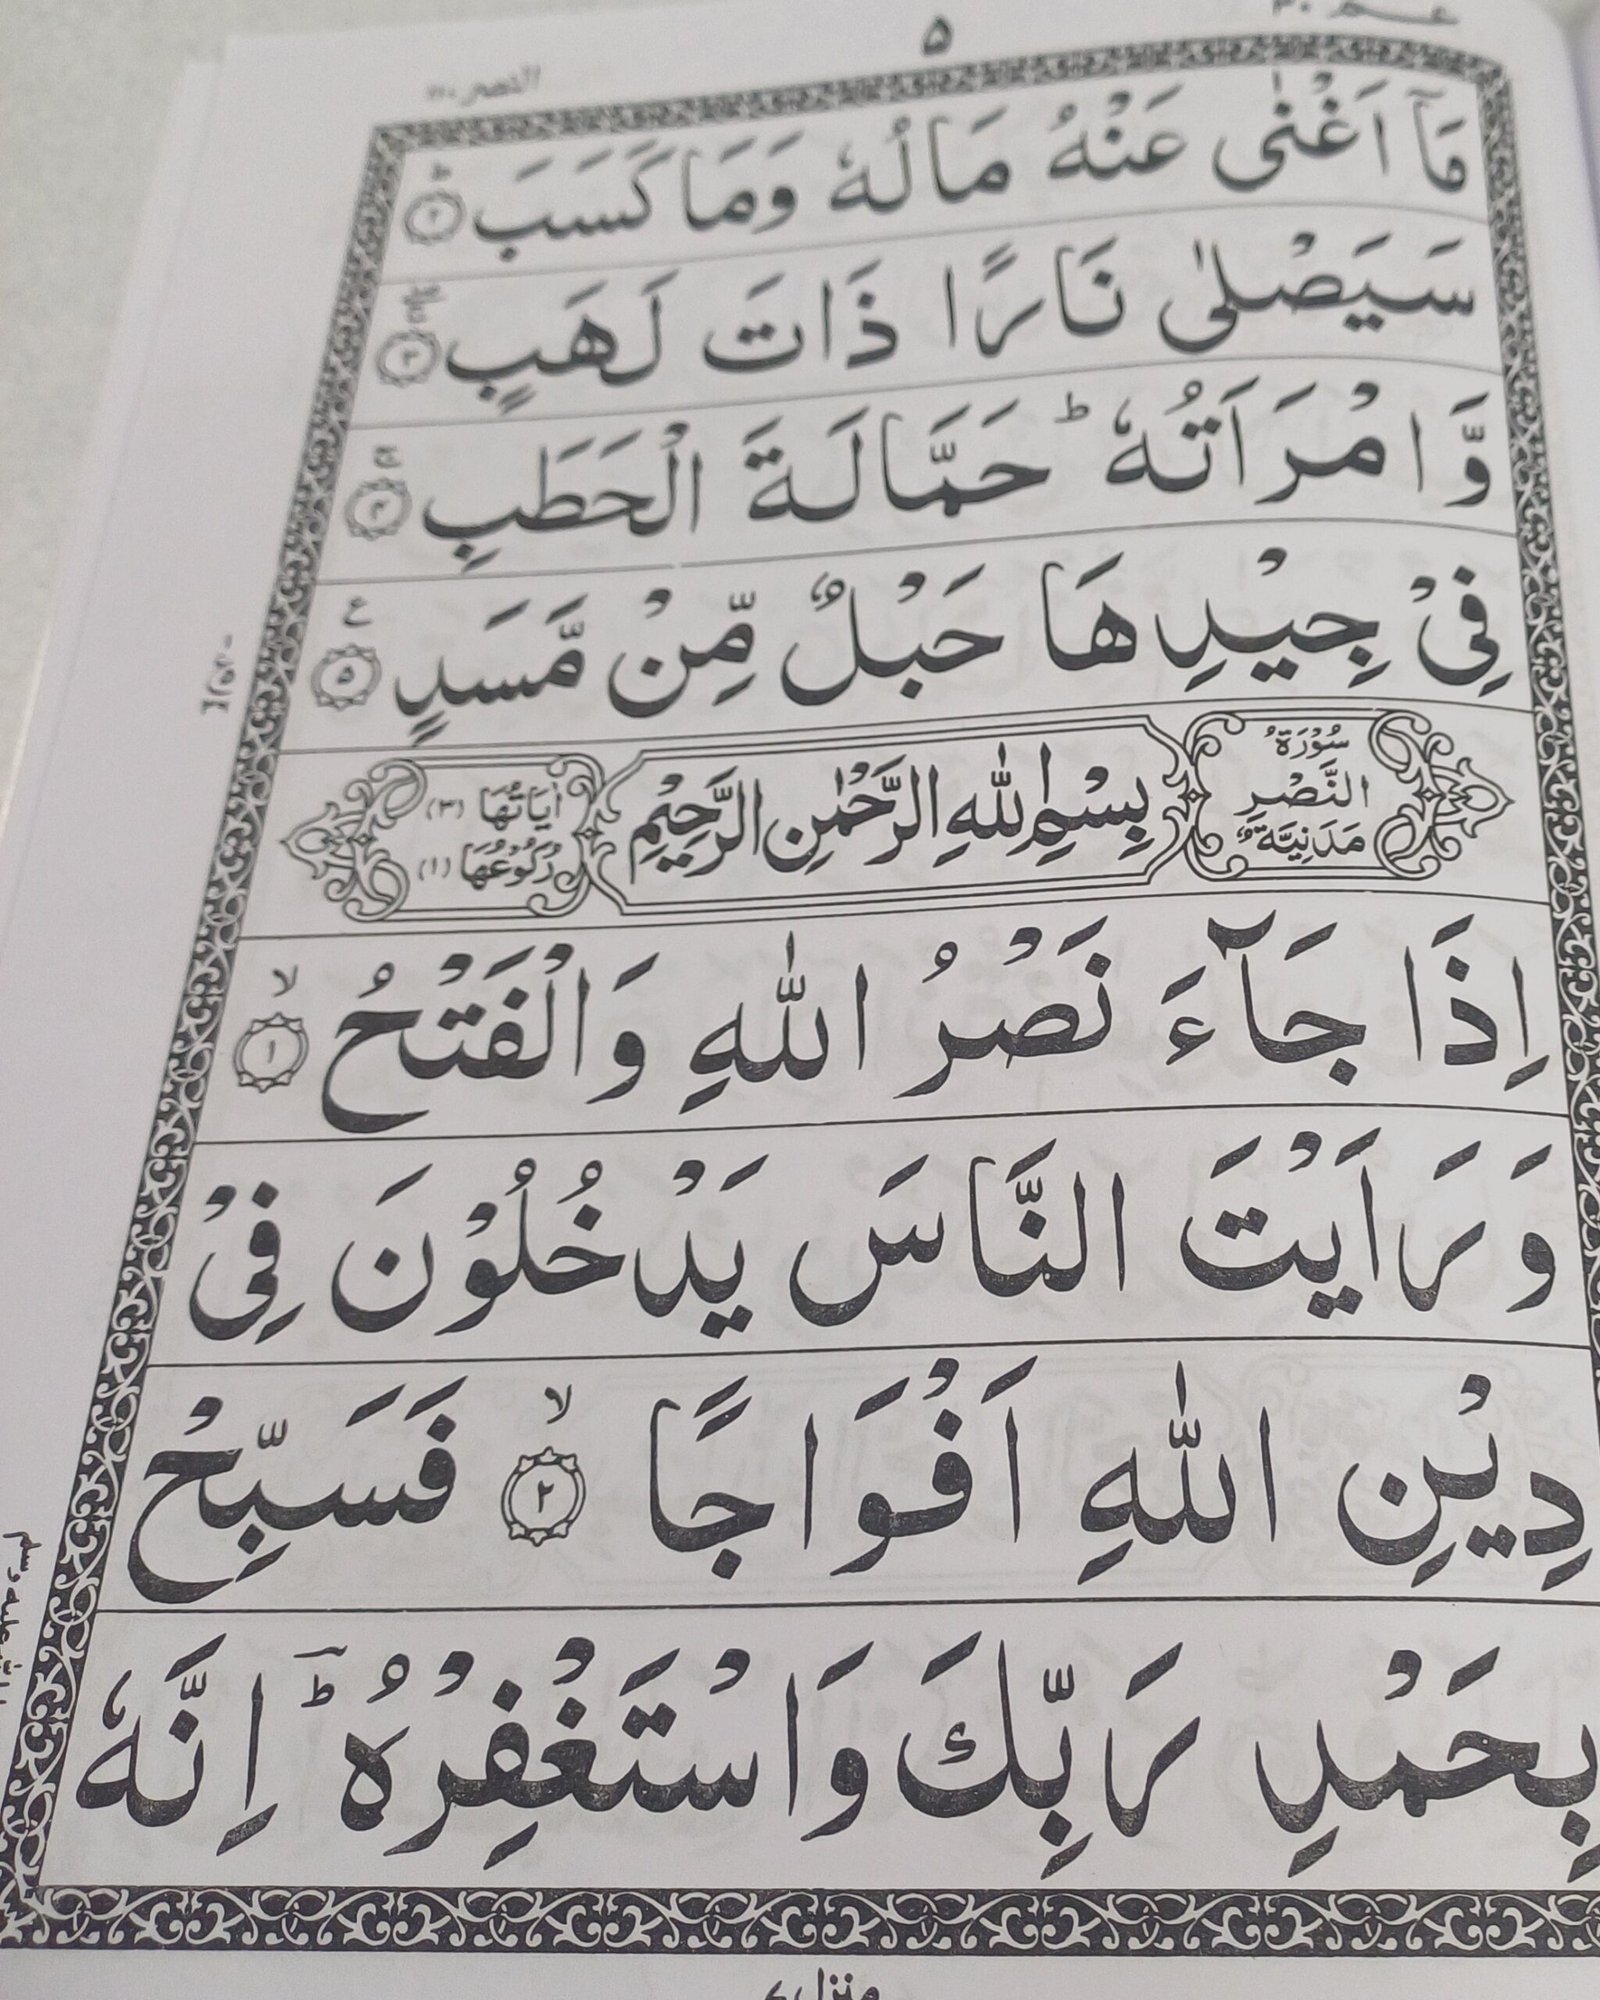 عم ۳۰
۵
النصر ۱۱۰
مَآ اَغْنٰى عَنْهُ مَالُهٗ وَمَا كَسَبَ ؕ ۲
سَيَصْلٰى نَارًا ذَاتَ لَهَبٍ ۳
وَّامْرَاَتُهٗ ؕ حَمَّالَةَ الْحَطَبِ ۴
فِىْ جِيْدِهَا حَبْلٌ مِّنْ مَّسَدٍ ۵ ع
سُوْرَةُ النَّصْرِ مَدَنِيَّةٌ
بِسْمِ اللّٰهِ الرَّحْمٰنِ الرَّحِيْمِ
اٰيَاتُهَا (۳)
رُكُوْعُهَا (۱)
اِذَا جَآءَ نَصْرُ اللّٰهِ وَالْفَتْحُ ۙ ۱
وَرَاَيْتَ النَّاسَ يَدْخُلُوْنَ فِىْ
دِيْنِ اللّٰهِ اَفْوَاجًا ۙ ۲ فَسَبِّحْ
بِحَمْدِ رَبِّكَ وَاسْتَغْفِرْهُ ؕ اِنَّهٗ
منزل ۷